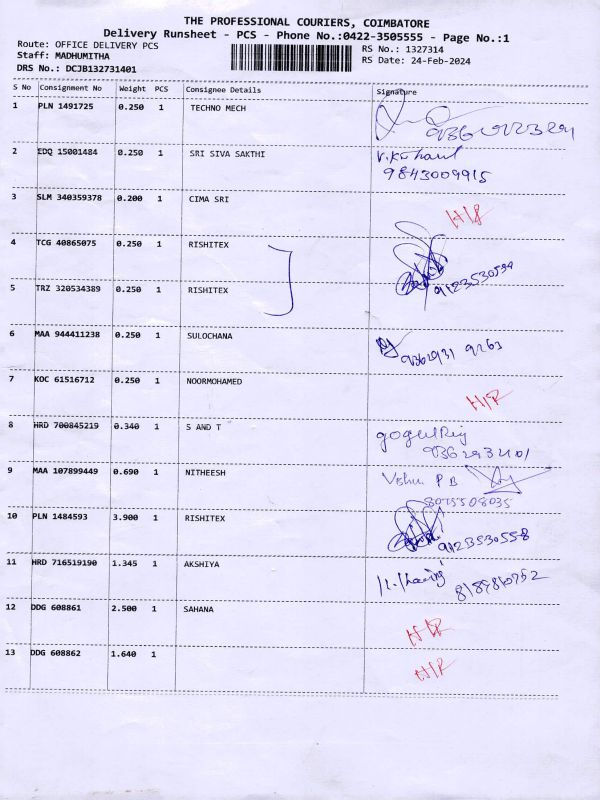 THE PROFESSIONAL COURIERS, COIMBATORE
Delivery Runsheet - PCS - Phone No.:0422-3505555 - Page No.:1
Route: OFFICE DELIVERY PCS
RS No.: 1327314
Staff: MADHUMITHA
RS Date: 24-Feb-2024
DRS No.: DCJB132731401
S No Consignment No Weight PCS Consignee Details Signature
1 PLN 1491725 0.250 1 TECHNO MECH
2 EDQ 15001484 0.250 1 SRI SIVA SAKTHI
9843009915
3 SLM 340359378 0.200 1 CIMA SRI
4 TCG 40865075 0.250 1 RISHITEX
5 TRZ 320534389 0.250 1 RISHITEX
6 MAA 944411238 0.250 1 SULOCHANA
7 KOC 61516712 0.250 1 NOORMOHAMED
H/R
8 HRD 700845219 0.340 1 S AND T
9 MAA 107899449 0.690 1 NITHEESH
10 PLN 1484593 3.900 1 RISHITEX
9123530558
11 HRD 716519190 1.345 1 AKSHIYA
12 DDG 608861 2.500 1 SAHANA
H/R
13 DDG 608862 1.640 1
H/R